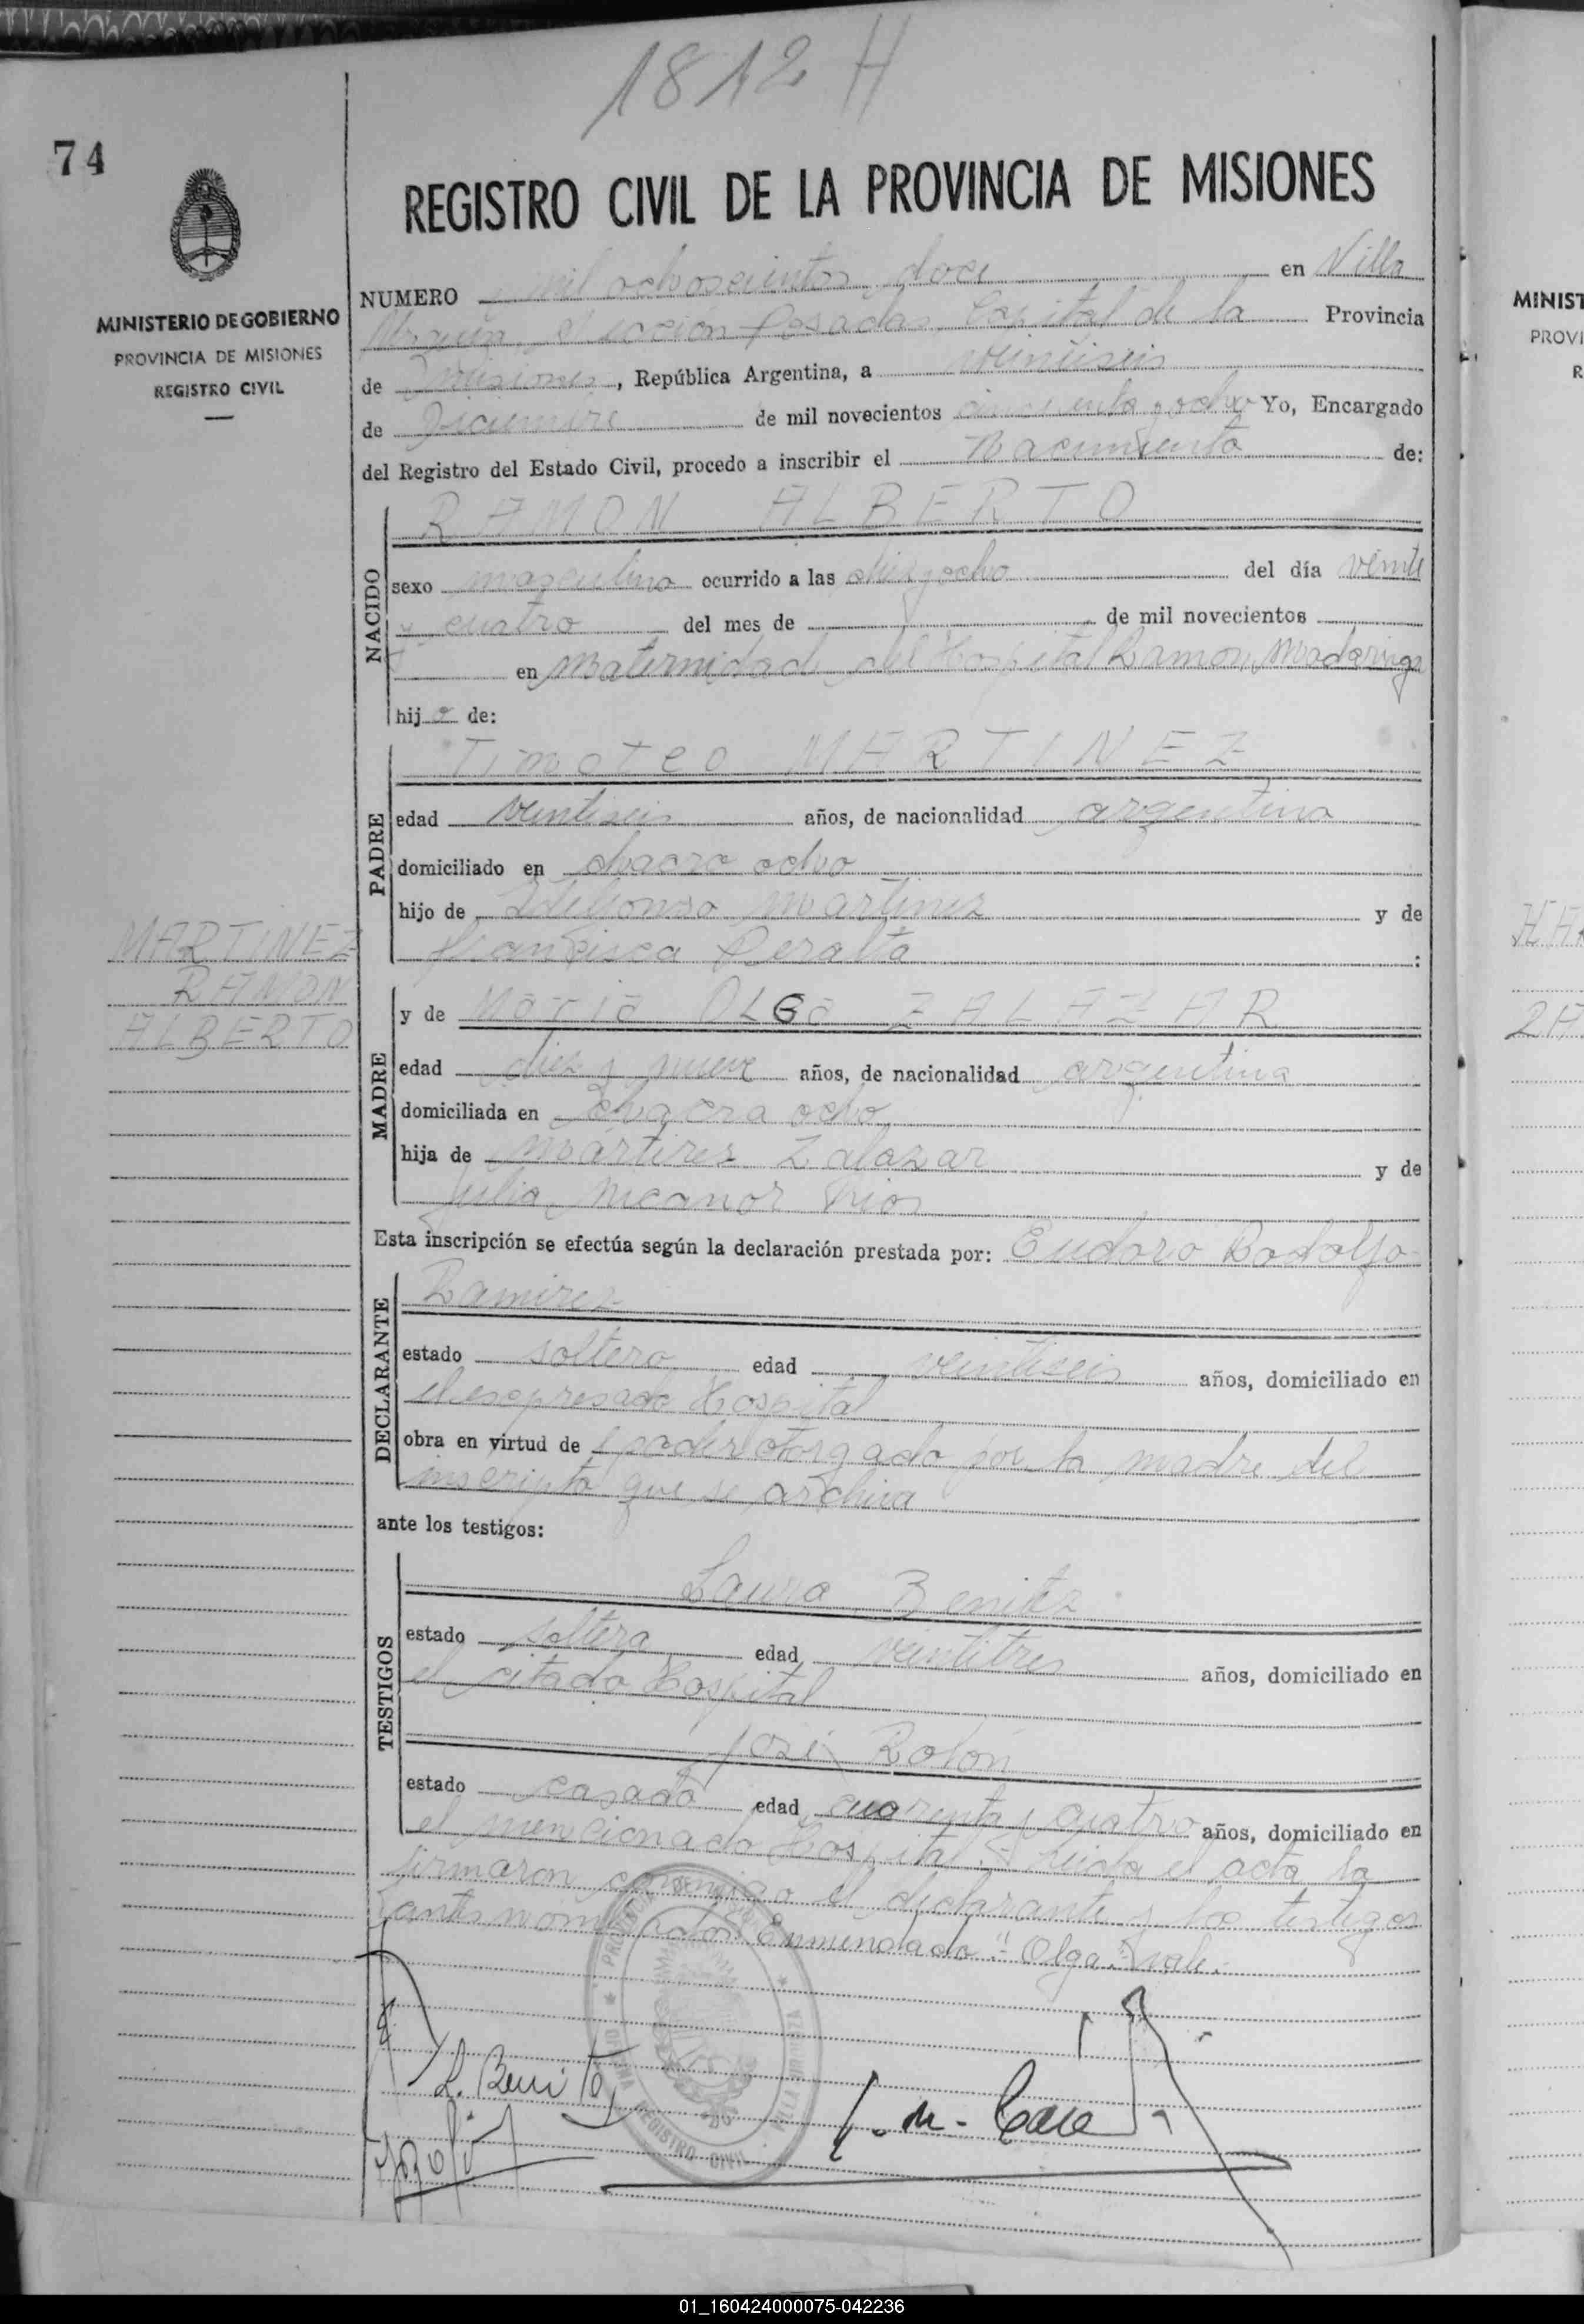 1812 H
74
REGISTRO CIVIL DE LA PROVINCIA DE MISIONES
MINISTERIO DE GOBIERNO
PROVINCIA DE MISIONES
REGISTRO CIVIL
NUMERO mil ochoscientos doce en Villa
Urquiza Sección Posadas Capital de la Provincia
de Misiones, República Argentina, a veintiseis
de Diciembre de mil novecientos cincuenta y ocho Yo, Encargado
del Registro del Estado Civil, procedo a inscribir el Nacimiento de:
NACIDO
RAMON ALBERTO
sexo masculino ocurrido a las diez y ocho del día veinte
y cuatro del mes de de mil novecientos
en Maternidad del Hospital Ramon Madariaga
hijo de:
PADRE
Timoteo MARTINEZ
edad veintiseis años, de nacionalidad argentina
domiciliado en chacra ocho
hijo de Ildefonso Martinez y de
Francisca Peralta :
MARTINEZ
RAMON
ALBERTO
MADRE
y de Maria OLGa ZALAZAR
edad diez y nueve años, de nacionalidad argentina
domiciliada en chacra ocho
hija de Martires Zalazar y de
Julia Nicanor Rios
Esta inscripción se efectúa según la declaración prestada por: Eudoro Rodolfo
DECLARANTE
Ramirez
estado soltero edad veintiseis años, domiciliado en
el expresado Hospital
obra en virtud de poder otorgado por la madre del
inscripto que se archiva
ante los testigos:
TESTIGOS
Laura Benitez
estado soltera edad veintitres años, domiciliado en
el citado Hospital
José Rolón
estado casado edad cuarenta y cuatro años, domiciliado en
el mencionado Hospital.- Leida el acta la
firmaron conmigo el declarante y los testigos
antes nombrados Enmendado "Olga" vale.
L. Benitez
PROVINCIA DE MISIONES
OFICINA REGISTRO CIVIL
VILLA URQUIZA
MINIST
PROVI
R
01_160424000075-042236